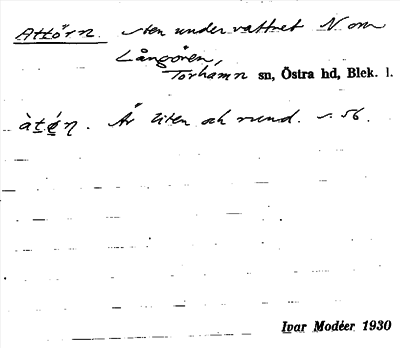 Attörn. sten under vattnet N om
Långören,
Torhamn sn, Östra hd, Blek. l.
àtén. Är liten och rund. s. 56.
Ivar Modéer 1930